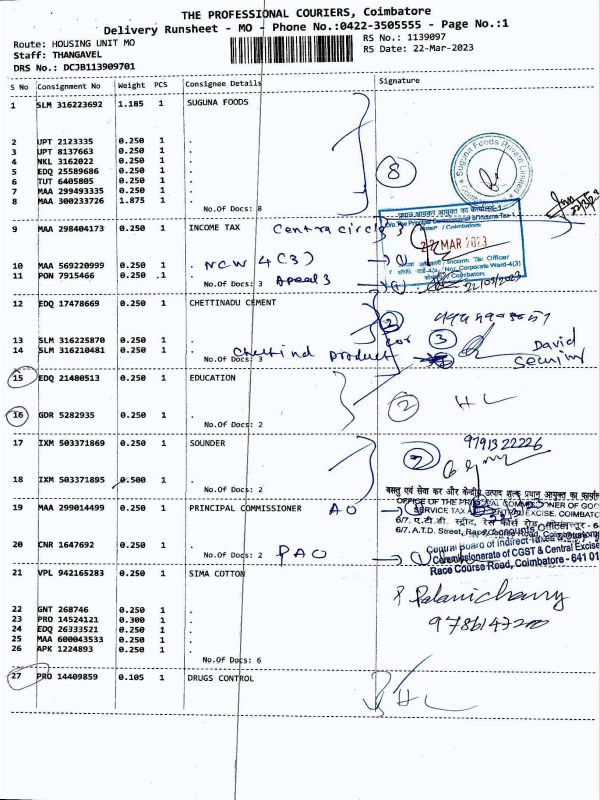 THE PROFESSIONAL COURIERS, Coimbatore
Delivery Runsheet - MO - Phone No.:0422-3505555 - Page No.:1
Route: HOUSING UNIT MO
RS No.: 1139097
Staff: THANGAVEL
RS Date: 22-Mar-2023
DRS No.: DCJB113909701
S No Consignment No Weight PCS Consignee Details Signature
1 SLM 316223692 1.185 1 SUGUNA FOODS
2 UPT 2123335 0.250 1 .
3 UPT 8137663 0.250 1 .
4 NKL 3162022 0.250 1 .
5 EDQ 25589686 0.250 1 .
6 TUT 6405805 0.250 1 .
7 MAA 299493335 0.250 1 .
8 MAA 300233726 1.875 1 .
8
Suguna Foods Private Limited
No.Of Docs: 8
9 MAA 298404173 0.250 1 INCOME TAX Centra circle 3
22 MAR 2023
10 MAA 569220999 0.250 1 . NCW 4(3)
11 PON 7915466 0.250 .1 . Apeal 3
No.Of Docs: 3
22/03/2023
12 EDQ 17478669 0.250 1 CHETTINADU CEMENT
2
13 SLM 316225870 0.250 1 .
14 SLM 316210481 0.250 1 .
Chettind product
cor
3
David
Security
No.Of Docs: 3
15 EDQ 21480513 0.250 1 EDUCATION
16 GDR 5282935 0.250 1 .
2 HL
No.Of Docs: 2
17 IXM 503371869 0.250 1 SOUNDER
9791322226
2
18 IXM 503371895 0.500 1 .
No.Of Docs: 2
19 MAA 299014499 0.250 1 PRINCIPAL COMMISSIONER AO
20 CNR 1647692 0.250 1 .
No.Of Docs: 2 PAO
Central Board of Indirect Taxes
Commissionerate of CGST & Central Excise
Race Course Road, Coimbatore - 641 01
21 VPL 942165283 0.250 1 SIMA COTTON
22 GNT 268746 0.250 1 .
23 PRO 14524121 0.300 1 .
24 EDQ 26333521 0.250 1 .
25 MAA 600043533 0.250 1 .
26 APK 1224893 0.250 1 .
No.Of Docs: 6
27 PRO 14409859 0.105 1 DRUGS CONTROL
HL